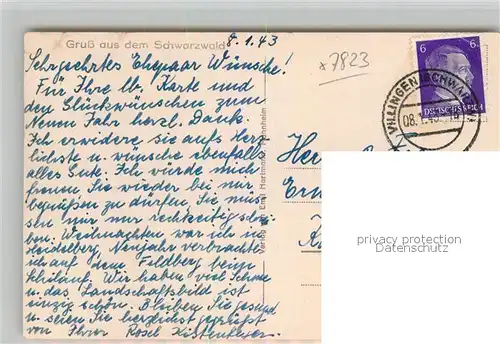 Gruß aus dem Schwarzwald
8.1.43
Sehrgeehrtes Ehepaar Wünsche!
Für Ihre lb. Karte und
den Glückwünschen zum
Neuen Jahr herzl. Dank.
Ich erwidere sie aufs Herz
lichste u. wünsche ebenfalls
alles Gute. Ich würde mich
freuen Sie wieder bei mir
begrüßen zu dürfen, Sie müs
sen mir nur rechtzeitig schrei
ben. Weihnachten war ich in
Heidelberg, Neujahr verbrachte
ich auf dem Feldberg beim
Schilauf. Wir haben viel Schnee
u. das Landschaftsbild ist
einzig schön. Bleiben Sie gesund
u. seien Sie herzlichst gegrüßt
von Ihrer Rosel
x7823
6 6
DEUTSCHES REICH
VILLINGEN (SCHWARZW
08.1.43
Verlag von Emil Hartmann, Mannheim
privacy protection
Datenschutz